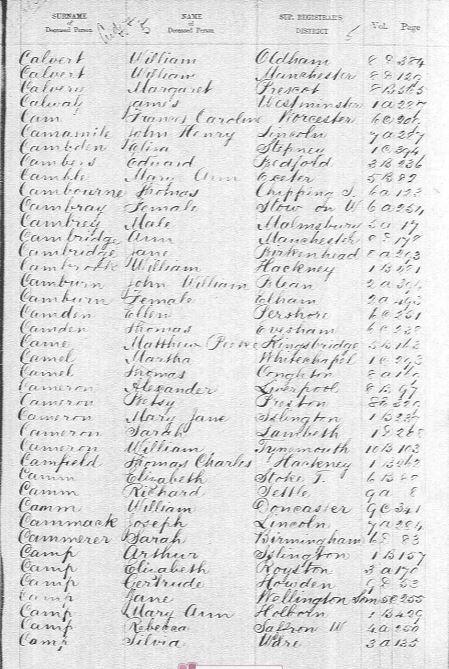 SURNAME of Deceased Person NAME of Deceased Person SUP. REGISTRAR'S DISTRICT Vol. Page
Calvert William Oldham 8 D 384
Calvert William Manchester 8 D 129
Calvert Margaret Prescot 8 B 565
Calway James Westminster 1 a 227
Cam Francis Caroline Worcester 6 C
Camamile John Henry Lincoln 7 a 247
Cambden Eliza Stepney 1 C 394
Cambers Edward Bedford 3 B 236
Camble Mary Ann Exeter 5 B 82
Cambourne Thomas Chipping S. 6 a 123
Cambray Female Stow on W 6 a 251
Cambrey Male Malmsbury 5 a 17
Cambridge Ann Manchester 8 D 178
Cambridge Jane Birkenhead 8 a
Cambrook William Hackney 1 B
Camburn John William Blean 2 a
Camburn Female Elham 2 a
Camden Ellen Pershore 6 C 251
Camden Thomas Evesham 6 C
Came Matthew Kingsbridge 5 B 162
Camel Martha Whitechapel 1 C 293
Camel Thomas Congleton 8 a
Cameron Alexander Liverpool 8 B 97
Cameron Betsy Preston 8 E
Cameron Mary Jane Islington 1 B
Cameron Sarah Lambeth 1 D 268
Cameron William Tynemouth 10 B 102
Camfield Thomas Charles Hackney 1 B
Camm Elizabeth Stoke T. 6 B 80
Camm Richard Settle 9 a 8
Camm William Doncaster 9 C 341
Cammack Joseph Lincoln 7 a 284
Cammerer Sarah Birmingham 6 D 83
Camp Arthur Islington 1 B 157
Camp Elizabeth Royston 3 a 170
Camp Gertrude Howden 9 D 53
Camp Jane Wellington Som 5 C 255
Camp Mary Ann Holborn 1 B 429
Camp Rebecca Saffron W 4 a 250
Camp Silvia Ware 3 a 135